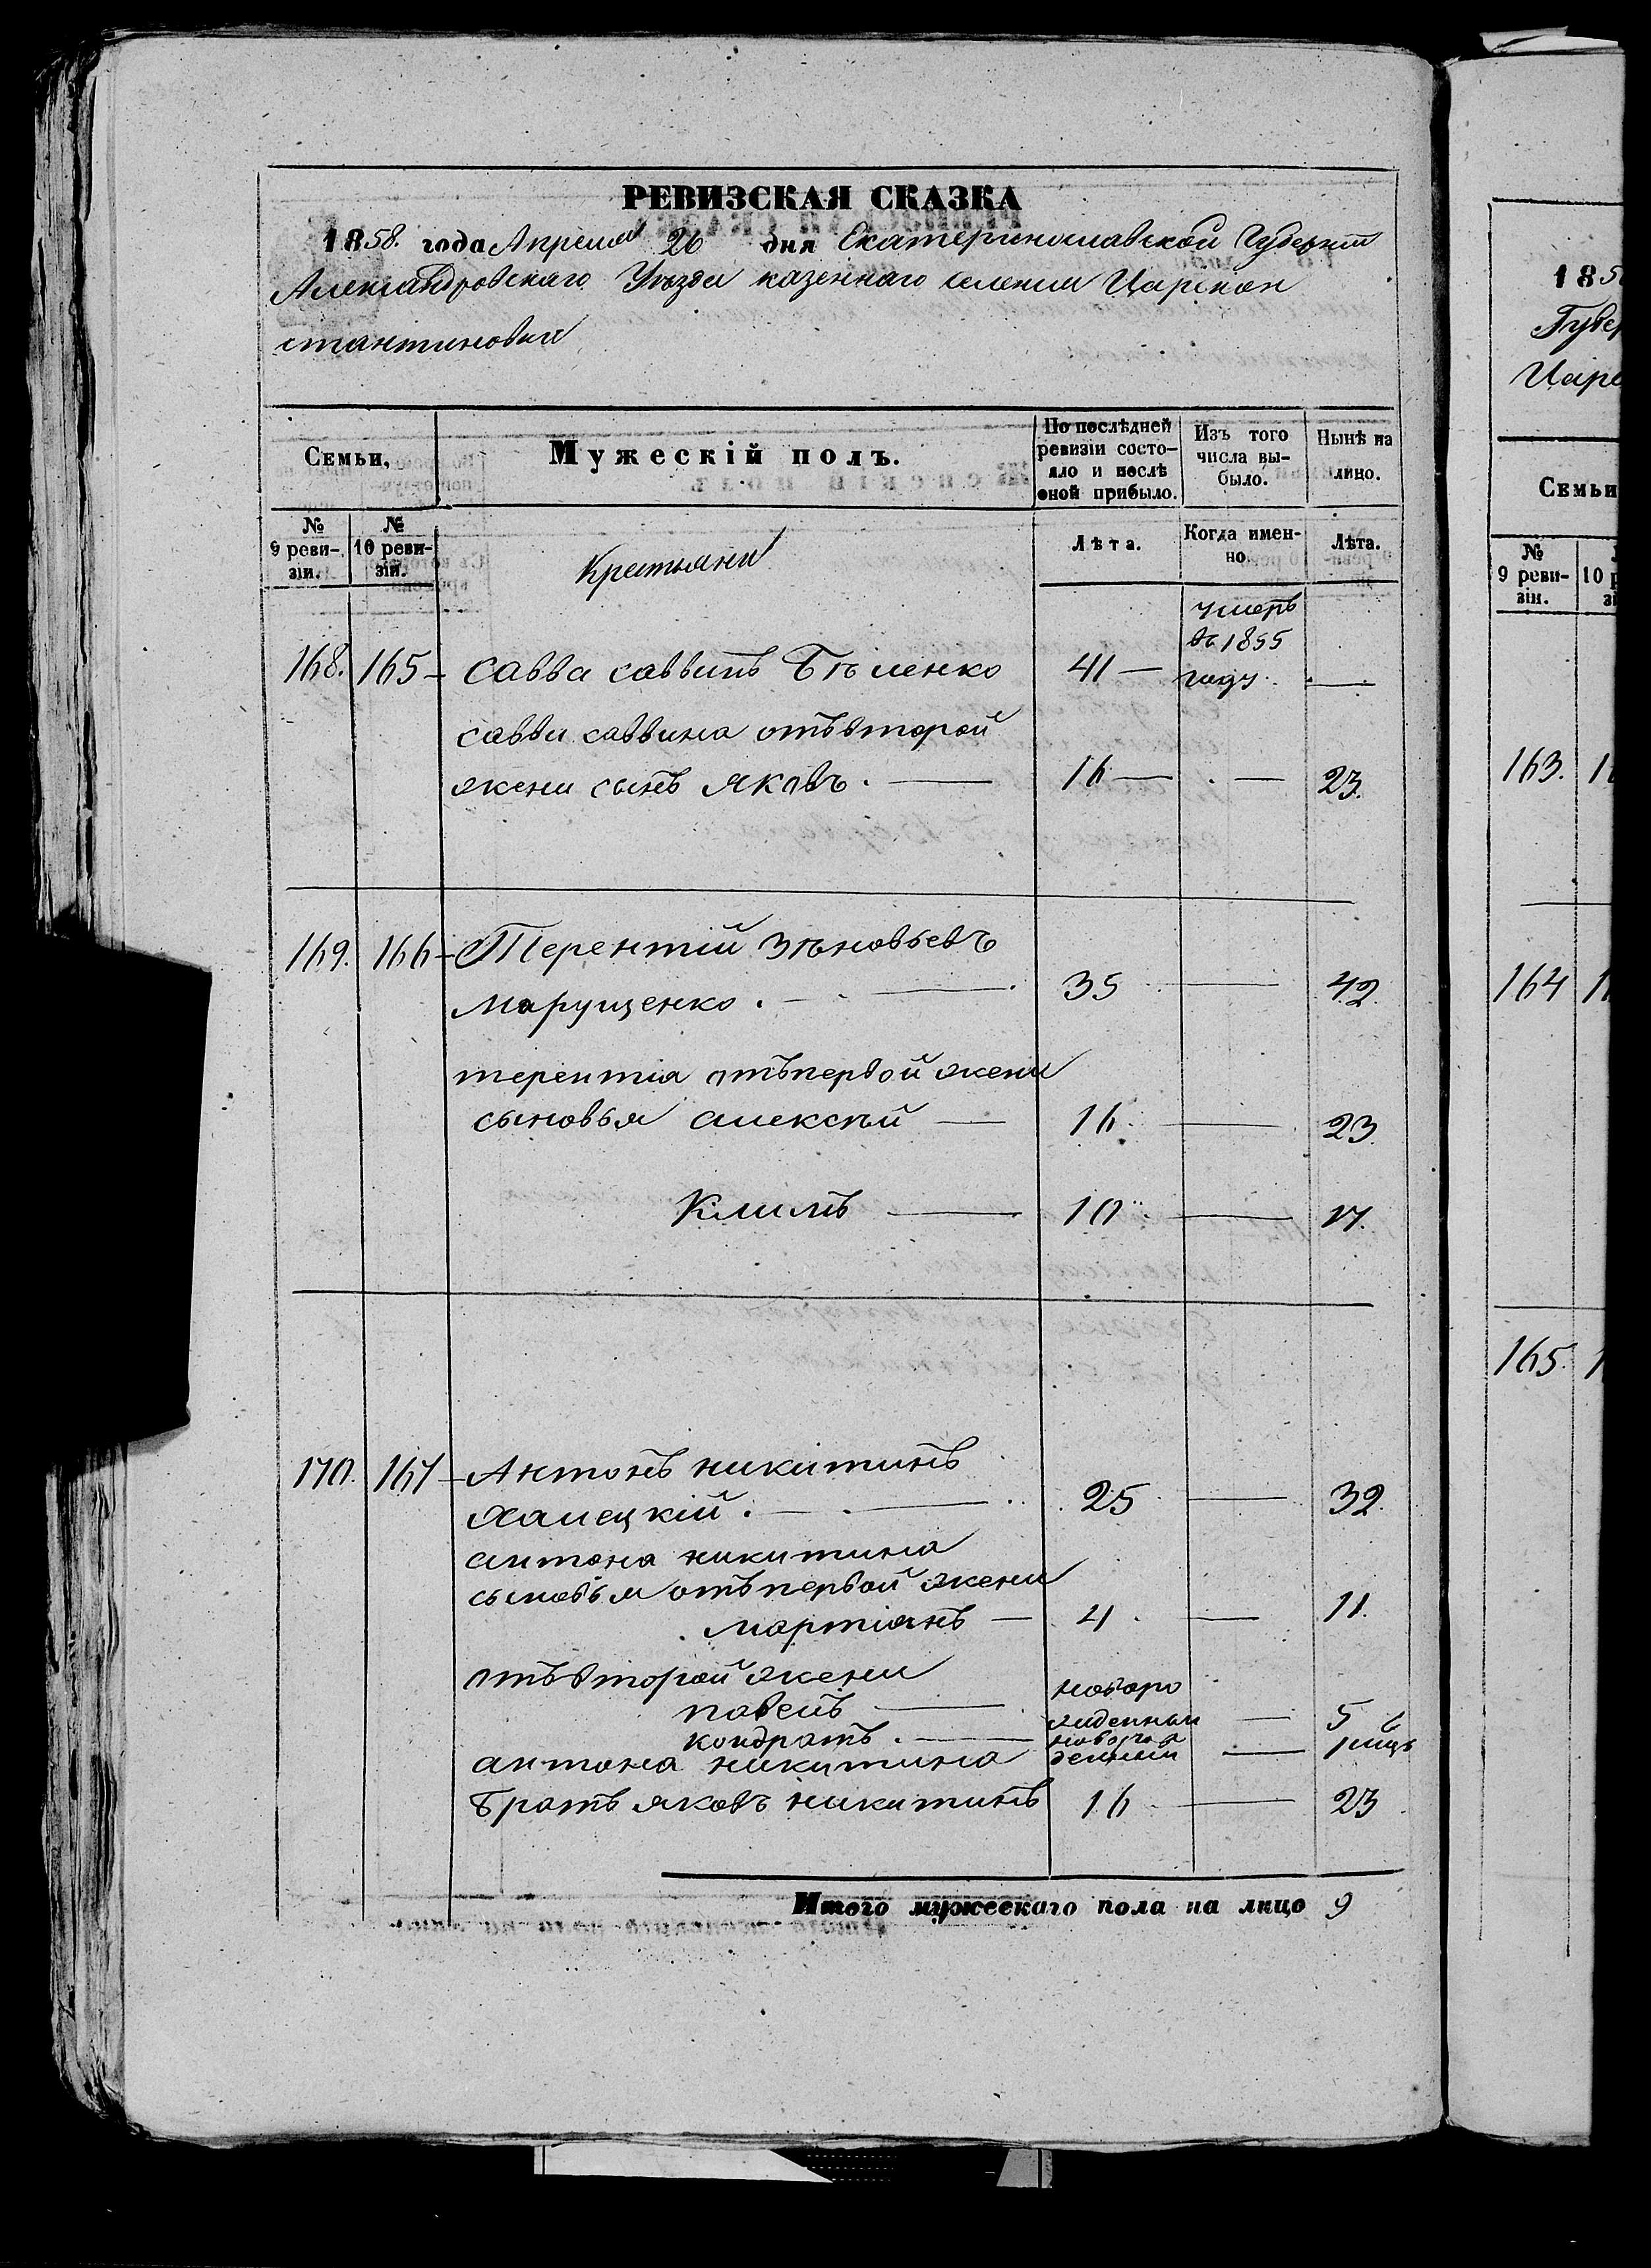 РЕВИЗСКАЯ СКАЗКА
1858. года Апреля 26 дня Екатеринославской Губерніи
Александровскаго Уѣзда казеннаго селенія Царекон
стантиновки
Семьи,
Мужескій полъ.
По послѣдней ревизіи состо-
яло и послѣ оной прибыло.
Изъ того числа вы-
было.
Нынѣ на лицо.
№ 9 реви-
зіи.
№ 10 реви-
зіи.
Крестьяни
Лѣта.
Когда имен-
но.
Лѣта.
умеръ
въ 1855
168. 165 - Савва саввинъ Бѣленко 41 — году. —
савви саввина отъ второй
жени сынъ яковъ. — 16 — . — 23.
169. 166 - Терентій зѣновьевъ
Марущенко. — 35 — 42.
терентія отъ первой жени
сыновья алексѣй — 16. — 23.
Климъ — 10 — 17.
170. 167 - Антонъ никитинъ
Халецкій. — 25 — 32.
антона никитина
сыновья отъ первой жени
мартіянъ — 4. — 11.
отъ второй жени
новоро
павелъ — жденный — 5
кондратъ. — — 1 мцъ
антона никитина
братъ яковъ никитинъ 16 — 23
Итого мужескаго пола на лицо 9
185
Губер
Царе
Семьи
№ 9 реви-
зіи.
10 р
зі
163. 1
164 1
165. 1